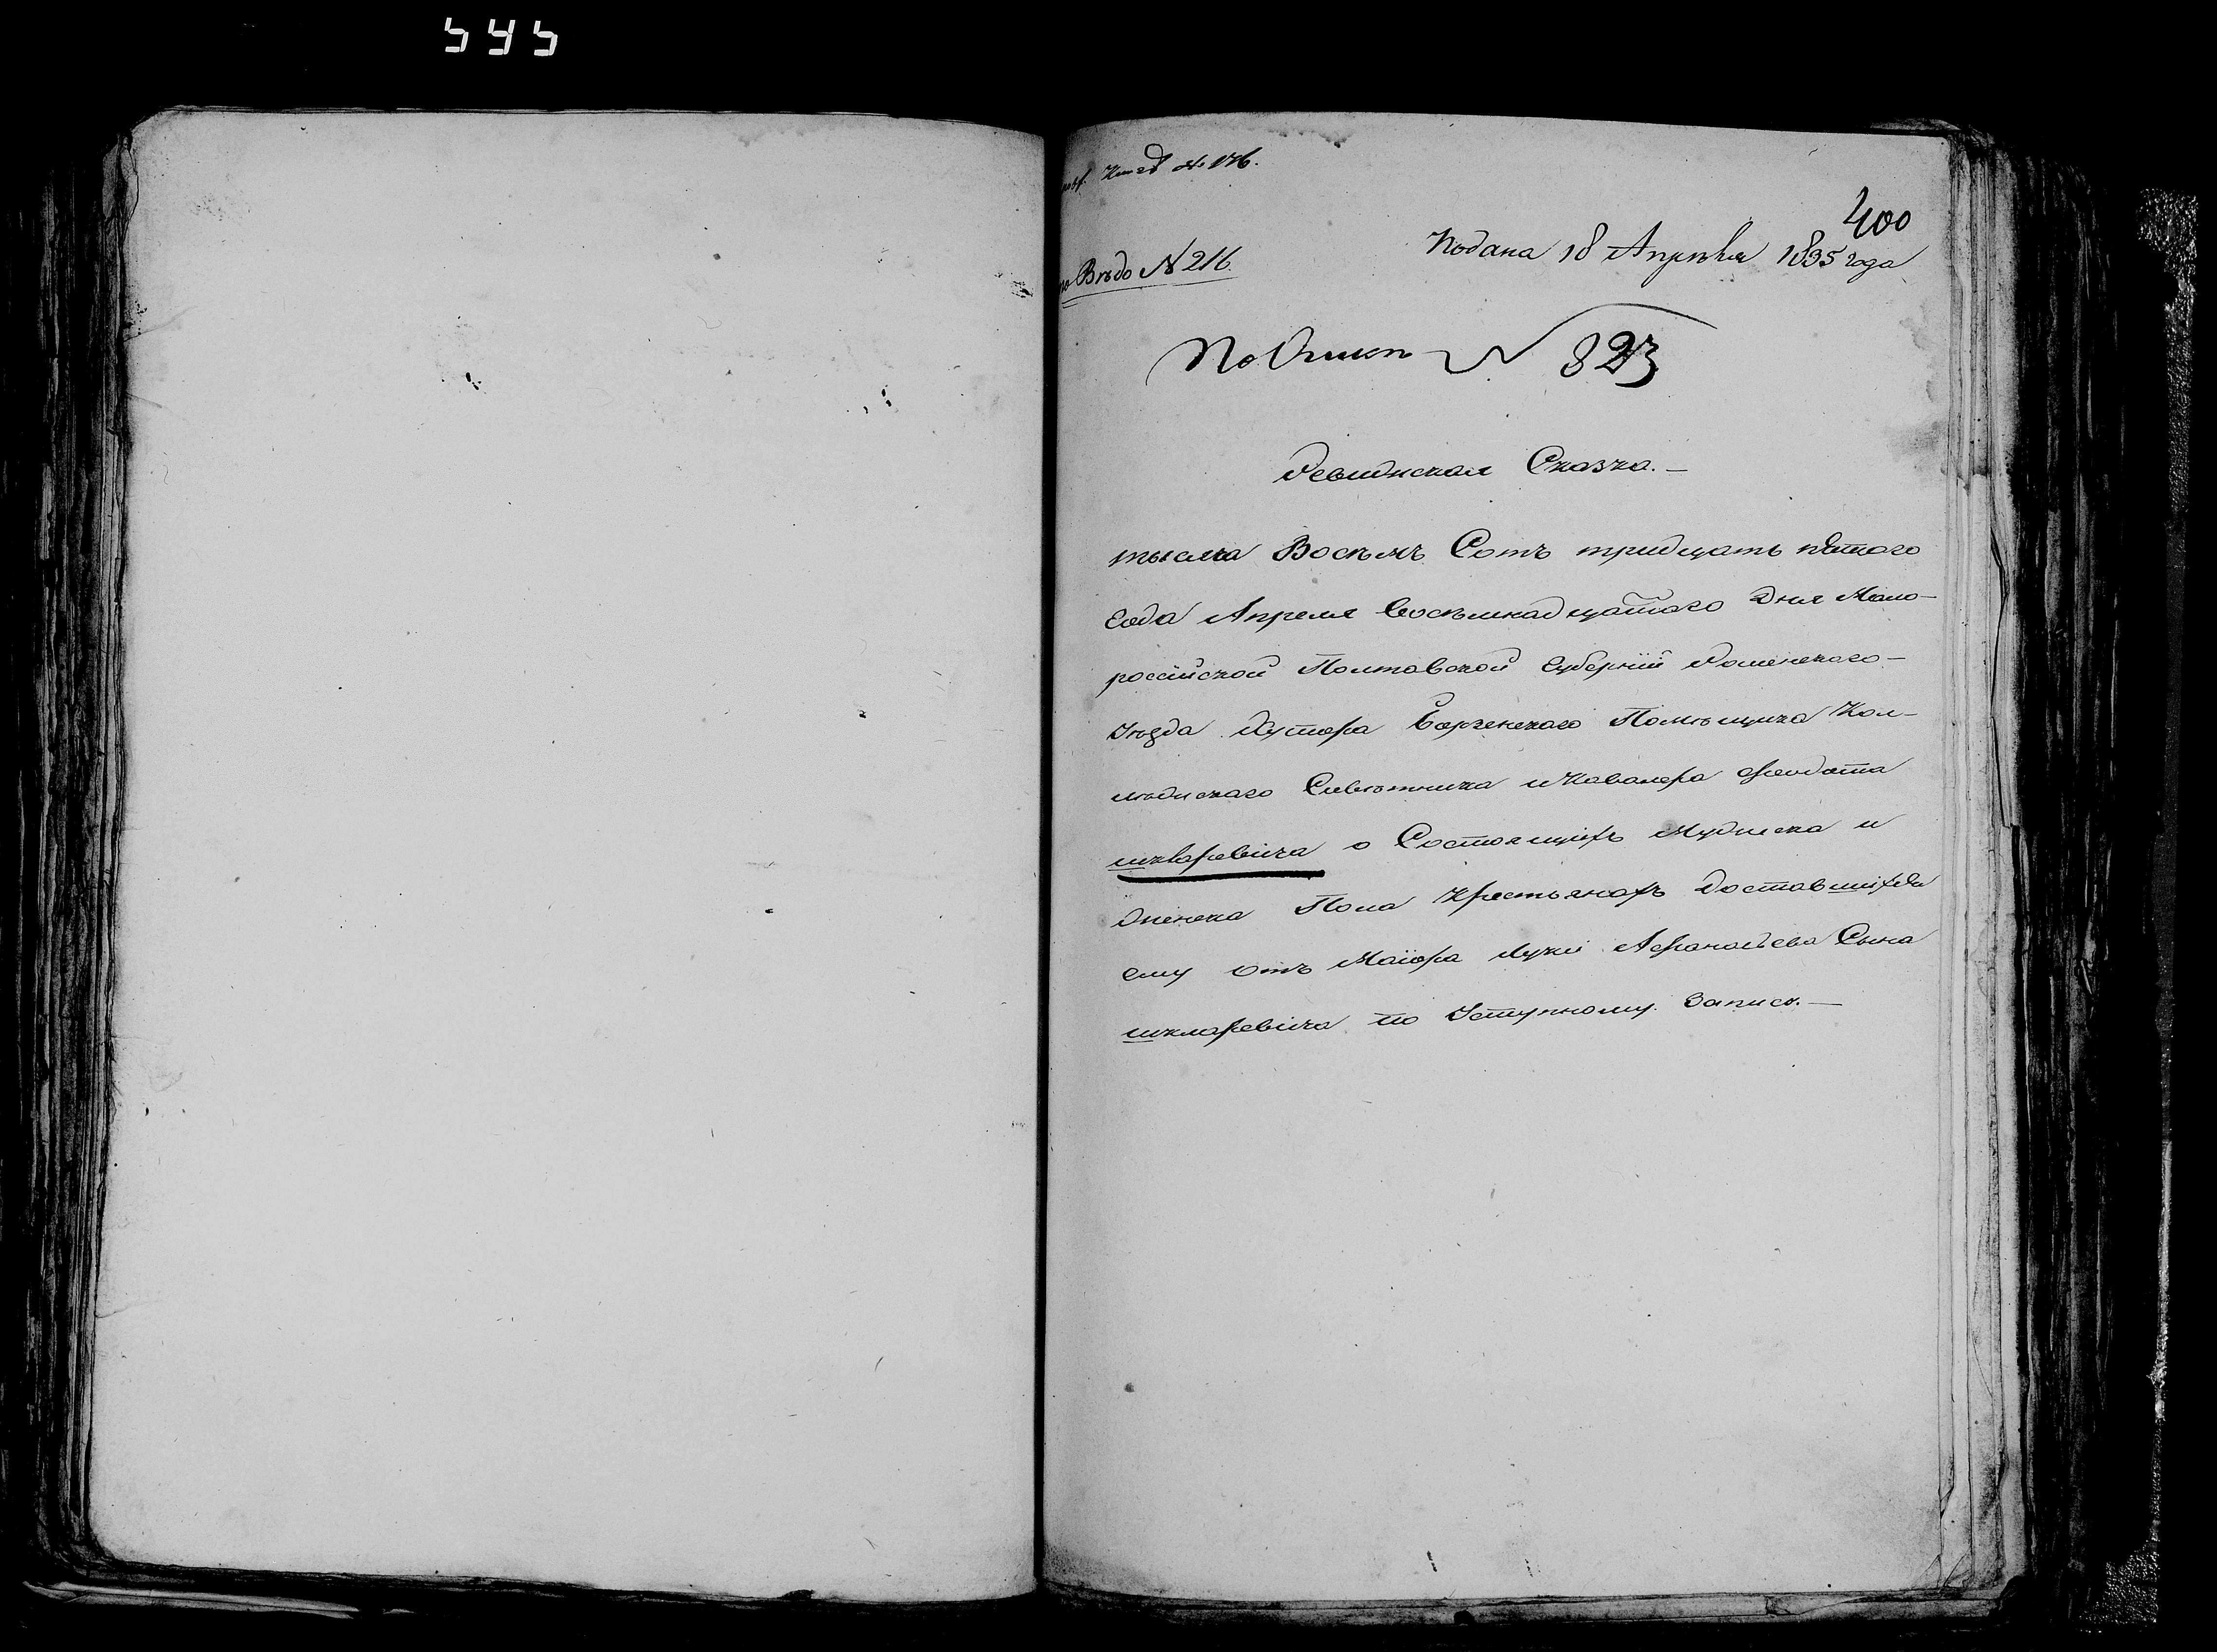 545
Книгѣ № 176.
400
Подана 18 Апрѣля 1835 года
по Вѣдо № 216.
По Описи № 823
Ревизская Сказка.—
тысяча Восемь Сотъ тридцать пятого
Года Апреля Восемнадцатого Дня Мало-
россійской Полтавской Губерніи Роменского-
Уѣзда Хутора Помѣщика Кол-
лежского Совѣтника и Кавалера Феодота
шкларевича о Состоящихъ Мужеска и
Женска Пола Крестьянахъ доставшихся
ему отъ Маіора Луки Афанасьева Сына
шкларевича по Уступному Записи.—